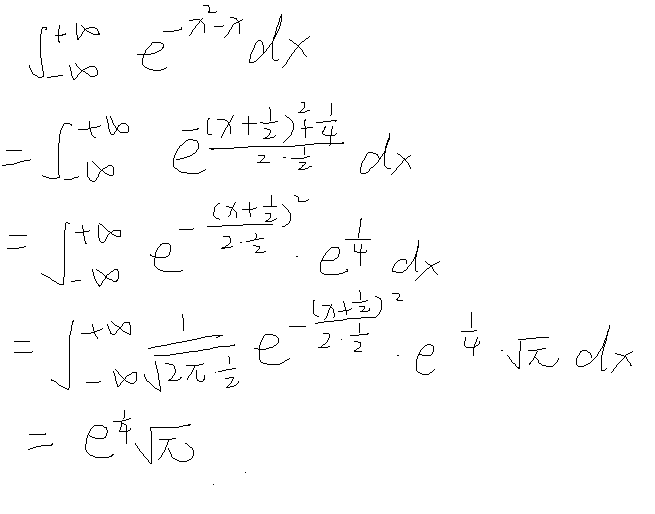 ∫_{-∞}^{+∞} e^{-x²-x} dx
= ∫_{-∞}^{+∞} e^{-\frac{(x+\frac{1}{2})²+\frac{1}{4}}{2·\frac{1}{2}}} dx
= ∫_{-∞}^{+∞} e^{-\frac{(x+\frac{1}{2})²}{2·\frac{1}{2}}} · e^{\frac{1}{4}} dx
= ∫_{-∞}^{+∞} \frac{1}{\sqrt{2π·\frac{1}{2}}} e^{-\frac{(x+\frac{1}{2})²}{2·\frac{1}{2}}} · e^{\frac{1}{4}} · √π dx
= e^{\frac{1}{4}} √π